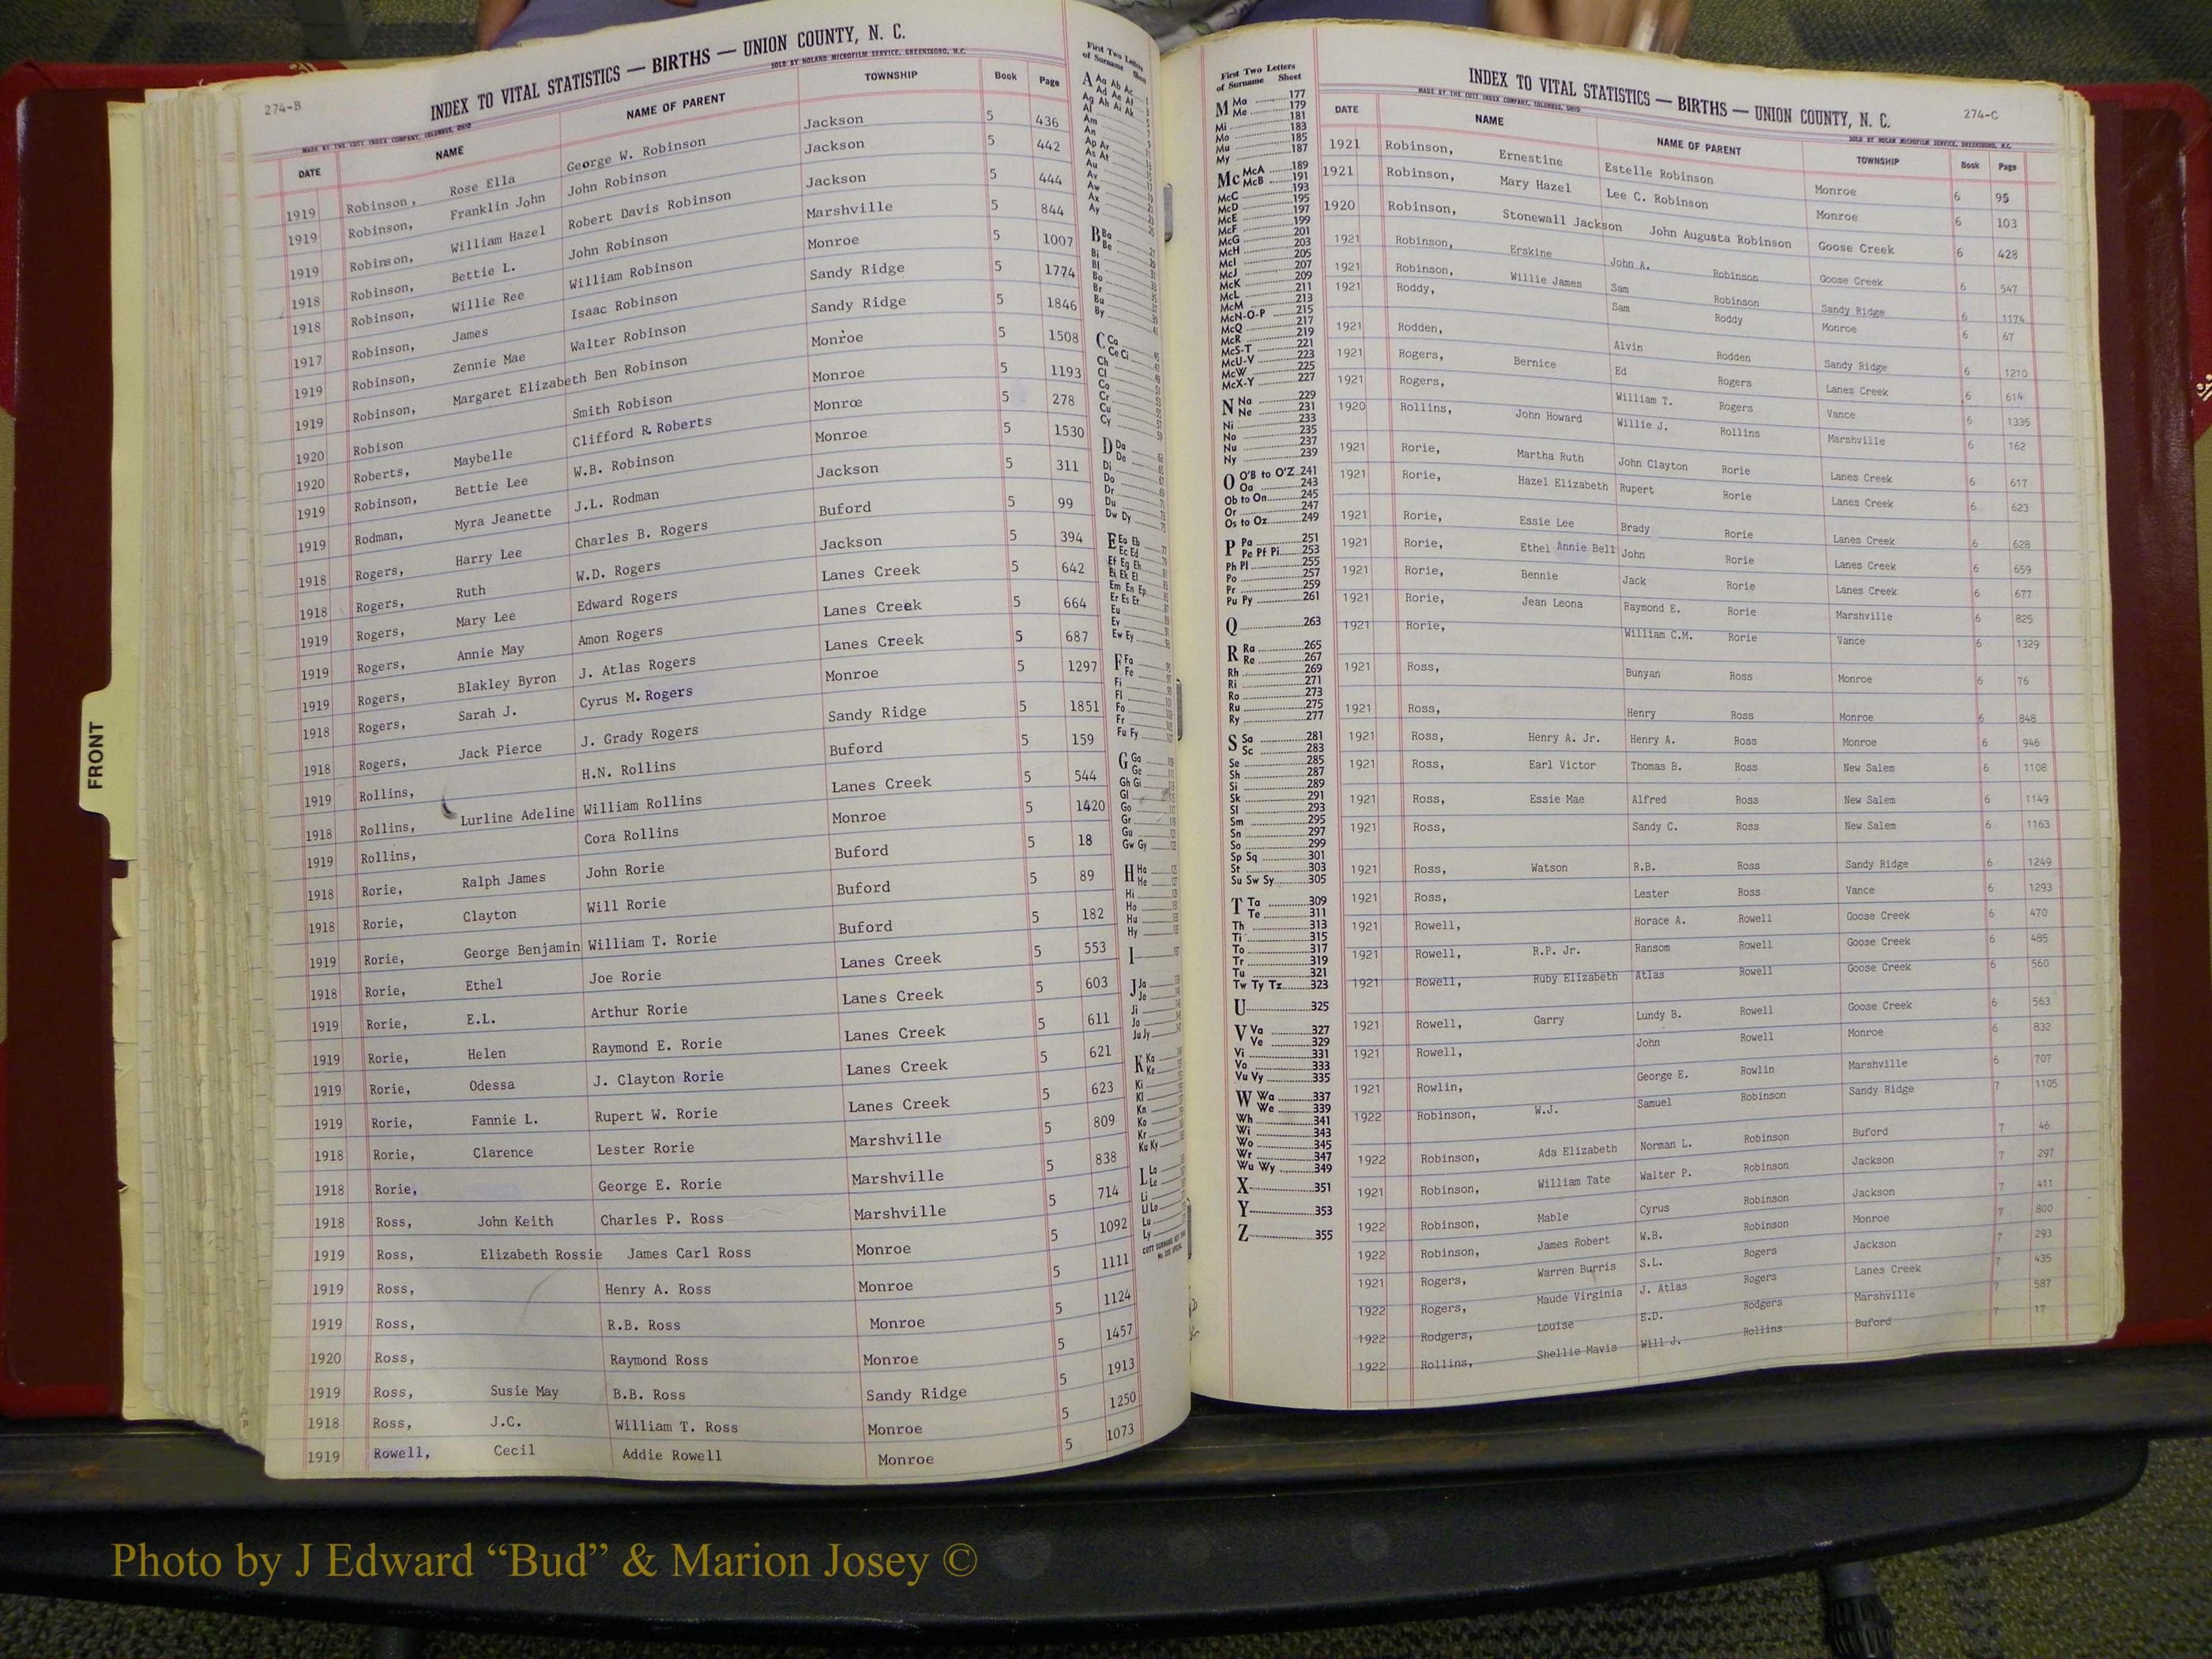 274-B
INDEX TO VITAL STATISTICS — BIRTHS — UNION COUNTY, N. C.
MADE BY THE COTT INDEX COMPANY, COLUMBUS, OHIO SOLD BY NOLAND MICROFILM SERVICE, GREENSBORO, N.C.
DATE NAME NAME OF PARENT TOWNSHIP Book Page
1919 Robinson, Rose Ella George W. Robinson Jackson 5 436
1919 Robinson, Franklin John John Robinson Jackson 5 442
1919 Robinson, William Hazel Robert Davis Robinson Jackson 5 444
1918 Robinson, Bettie L. John Robinson Marshville 5 844
1918 Robinson, Willie Ree William Robinson Monroe 5 1007
1917 Robinson, James Isaac Robinson Sandy Ridge 5 1774
1919 Robinson, Zennie Mae Walter Robinson Sandy Ridge 5 1846
1919 Robinson, Margaret Elizabeth Ben Robinson Monroe 5 1508
1920 Robison Smith Robison Monroe 5 1193
1920 Roberts, Maybelle Clifford R. Roberts Monroe 5 278
1919 Robinson, Bettie Lee W.B. Robinson Monroe 5 1530
1919 Rodman, Myra Jeanette J.L. Rodman Jackson 5 311
1918 Rogers, Harry Lee Charles B. Rogers Buford 5 99
1918 Rogers, Ruth W.D. Rogers Jackson 5 394
1919 Rogers, Mary Lee Edward Rogers Lanes Creek 5 642
1919 Rogers, Annie May Amon Rogers Lanes Creek 5 664
1919 Rogers, Blakley Byron J. Atlas Rogers Lanes Creek 5 687
1918 Rogers, Sarah J. Cyrus M. Rogers Monroe 5 1297
1918 Rogers, Jack Pierce J. Grady Rogers Sandy Ridge 5 1851
1919 Rollins, H.N. Rollins Buford 5 159
1918 Rollins, Lurline Adeline William Rollins Lanes Creek 5 544
1919 Rollins, Cora Rollins Monroe 5 1420
1918 Rorie, Ralph James John Rorie Buford 5 18
1918 Rorie, Clayton Will Rorie Buford 5 89
1919 Rorie, George Benjamin William T. Rorie Buford 5 182
1918 Rorie, Ethel Joe Rorie Lanes Creek 5 553
1919 Rorie, E.L. Arthur Rorie Lanes Creek 5 603
1919 Rorie, Helen Raymond E. Rorie Lanes Creek 5 611
1919 Rorie, Odessa J. Clayton Rorie Lanes Creek 5 621
1919 Rorie, Fannie L. Rupert W. Rorie Lanes Creek 5 623
1918 Rorie, Clarence Lester Rorie Marshville 5 809
1918 Rorie, George E. Rorie Marshville 5 838
1918 Ross, John Keith Charles P. Ross Marshville 5 714
1919 Ross, Elizabeth Rossie James Carl Ross Monroe 5 1092
1919 Ross, Henry A. Ross Monroe 5 1111
1919 Ross, R.B. Ross Monroe 5 1124
1920 Ross, Raymond Ross Monroe 5 1457
1919 Ross, Susie May B.B. Ross Sandy Ridge 5 1913
1918 Ross, J.C. William T. Ross Monroe 5 1250
1919 Rowell, Cecil Addie Rowell Monroe 5 1073
FRONT
First Two Letters
of Surname Sheet
A Aa Ab Ac
Ad Ae Af
Ag Ah Ai Ak
Al
Am
An
Ap Ar
As At
Au
Av
Aw
Ax
Ay
B Ba
Be
Bi
Bl
Bo
Br
Bu
By
C Ca
Ce Ci
Ch
Cl
Co
Cr
Cu
Cy
D Da
De
Di
Do
Dr
Du
Dw Dy
E Ea Eb
Ec Ed
Ef Eg Eh
Ei Ek El
Em En Ep
Er Es Et
Eu
Ev
Ew Ey
F Fa
Fe
Fi
Fl
Fo
Fr
Fu Fy
G Ga
Ge
Gh Gi
Gl
Go
Gr
Gu
Gw Gy
H Ha
He
Hi
Ho
Hu
Hy
I
J Ja
Je
Ji
Jo
Ju Jy
K Ka
Ke
Ki
Kl
Kn
Ko
Kr
Ku Ky
L La
Le
Li
Ll Lo
Lu
Ly
First Two Letters
of Surname Sheet
M Ma 177
Me 179
Mi 181
Mo 183
Mu 185
My 187
Mc McA 189
McB 191
McC 193
McD 195
McE 197
McF 199
McG 201
McH 203
McI 205
McJ 207
McK 209
McL 211
McM 213
McN-O-P 215
McQ 217
McR 219
McS-T 221
McU-V 223
McW 225
McX-Y 227
N Na 229
Ne 231
Ni 233
No 235
Nu 237
Ny 239
O O'B to O'Z 241
Oa 243
Ob to On 245
Or 247
Os to Oz 249
P Pa 251
Pe Pf Pi 253
Ph Pl 255
Po 257
Pr 259
Pu Py 261
Q 263
R Ra 265
Re 267
Rh 269
Ri 271
Ro 273
Ru 275
Ry 277
S Sa 281
Sc 283
Se 285
Sh 287
Si 289
Sk 291
Sl 293
Sm 295
Sn 297
So 299
Sp Sq 301
St 303
Su Sw Sy 305
T Ta 309
Te 311
Th 313
Ti 315
To 317
Tr 319
Tu 321
Tw Ty Tz 323
U 325
V Va 327
Ve 329
Vi 331
Vo 333
Vu Vy 335
W Wa 337
We 339
Wh 341
Wi 343
Wo 345
Wr 347
Wu Wy 349
X 351
Y 353
Z 355
INDEX TO VITAL STATISTICS — BIRTHS — UNION COUNTY, N. C. 274-C
MADE BY THE COTT INDEX COMPANY, COLUMBUS, OHIO SOLD BY NOLAN MICROFILM SERVICE, GREENSBORO, N.C.
DATE NAME NAME OF PARENT TOWNSHIP Book Page
1921 Robinson, Ernestine Estelle Robinson Monroe 6 95
1921 Robinson, Mary Hazel Lee C. Robinson Monroe 6 103
1920 Robinson, Stonewall Jackson John Augusta Robinson Goose Creek 6 428
1921 Robinson, Erskine John A. Robinson Goose Creek 6 547
1921 Robinson, Willie James Sam Robinson Sandy Ridge 6 1174
1921 Roddy, Sam Roddy Monroe 6 67
1921 Rodden, Alvin Rodden Sandy Ridge 6 1210
1921 Rogers, Bernice Ed Rogers Lanes Creek 6 614
1921 Rogers, William T. Rogers Vance 6 1335
1920 Rollins, John Howard Willie J. Rollins Marshville 6 162
1921 Rorie, Martha Ruth John Clayton Rorie Lanes Creek 6 617
1921 Rorie, Hazel Elizabeth Rupert Rorie Lanes Creek 6 623
1921 Rorie, Essie Lee Brady Rorie Lanes Creek 6 628
1921 Rorie, Ethel Annie Bell John Rorie Lanes Creek 6 659
1921 Rorie, Bennie Jack Rorie Lanes Creek 6 677
1921 Rorie, Jean Leona Raymond E. Rorie Marshville 6 825
1921 Rorie, William C.M. Rorie Vance 6 1329
1921 Ross, Bunyan Ross Monroe 6 76
1921 Ross, Henry Ross Monroe 6 848
1921 Ross, Henry A. Jr. Henry A. Ross Monroe 6 946
1921 Ross, Earl Victor Thomas B. Ross New Salem 6 1108
1921 Ross, Essie Mae Alfred Ross New Salem 6 1149
1921 Ross, Sandy C. Ross New Salem 6 1163
1921 Ross, Watson R.B. Ross Sandy Ridge 6 1249
1921 Ross, Lester Ross Vance 6 1293
1921 Rowell, Horace A. Rowell Goose Creek 6 470
1921 Rowell, R.P. Jr. Ransom Rowell Goose Creek 6 485
1921 Rowell, Ruby Elizabeth Atlas Rowell Goose Creek 6 560
1921 Rowell, Garry Lundy B. Rowell Goose Creek 6 563
1921 Rowell, John Rowell Monroe 6 832
1921 Rowlin, George E. Rowlin Marshville 6 707
1922 Robinson, W.J. Samuel Robinson Sandy Ridge 7 1105
1922 Robinson, Ada Elizabeth Norman L. Robinson Buford 7 46
1921 Robinson, William Tate Walter P. Robinson Jackson 7 297
1922 Robinson, Mable Cyrus Robinson Jackson 7 411
1922 Robinson, James Robert W.B. Robinson Monroe 7 800
1921 Rogers, Warren Burris S.L. Rogers Jackson 7 293
1922 Rogers, Maude Virginia J. Atlas Rogers Lanes Creek 7 435
1922 Rodgers, Louise E.D. Rodgers Marshville 7 587
1922 Rollins, Shellie Mavis Will J. Rollins Buford 7 17
Photo by J Edward “Bud” & Marion Josey ©